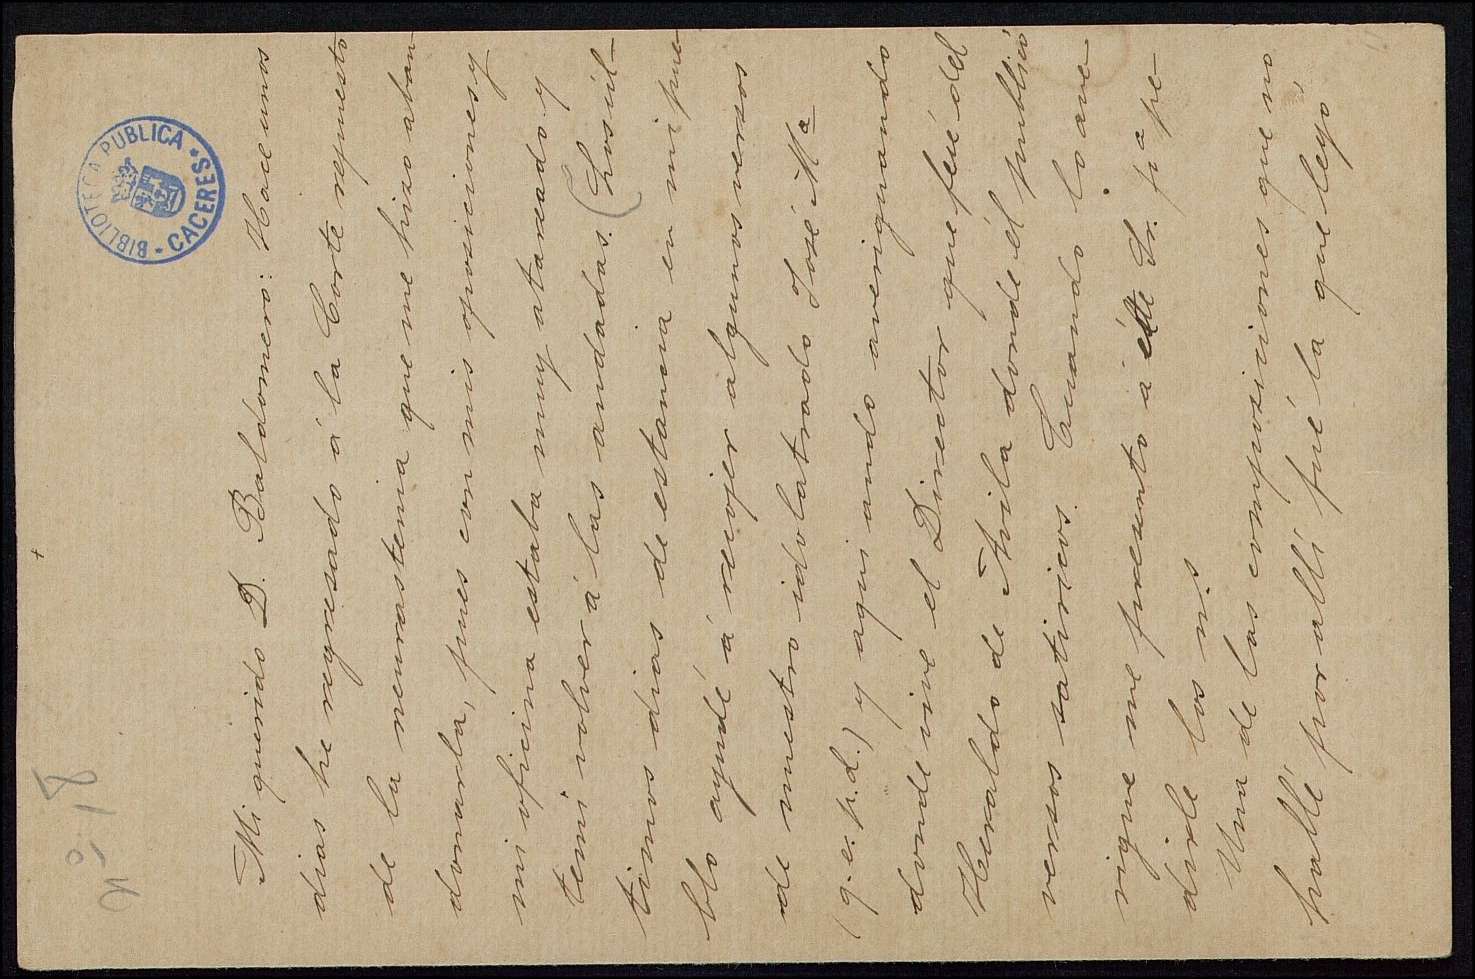 nº 18
BIBLIOTECA PUBLICA * CACERES -
Mi querido D. Baldomero: Hace unos
dias he regresado á la Corte repuesto
de la neurastenia que me hizo aban
donarla, pues con mis oposiciones y
mi oficina estaba muy atareado y
temi volver á las andadas. (Los úl-
timos dias de estancia en mi pue
blo ayudé á recojer algunos versos
de nuestro idolatrado José Mª
(q.e.p.d.) y aqui ando averiguando
donde vive el Director que fué del
Heraldo de Avila donde él publicó
versos satiricos. Cuando lo ave
rigue me presento á éste Sr. pª pe-
dirle los nºs
Una de las composiciones que no
hallé por allí fué la que leyó